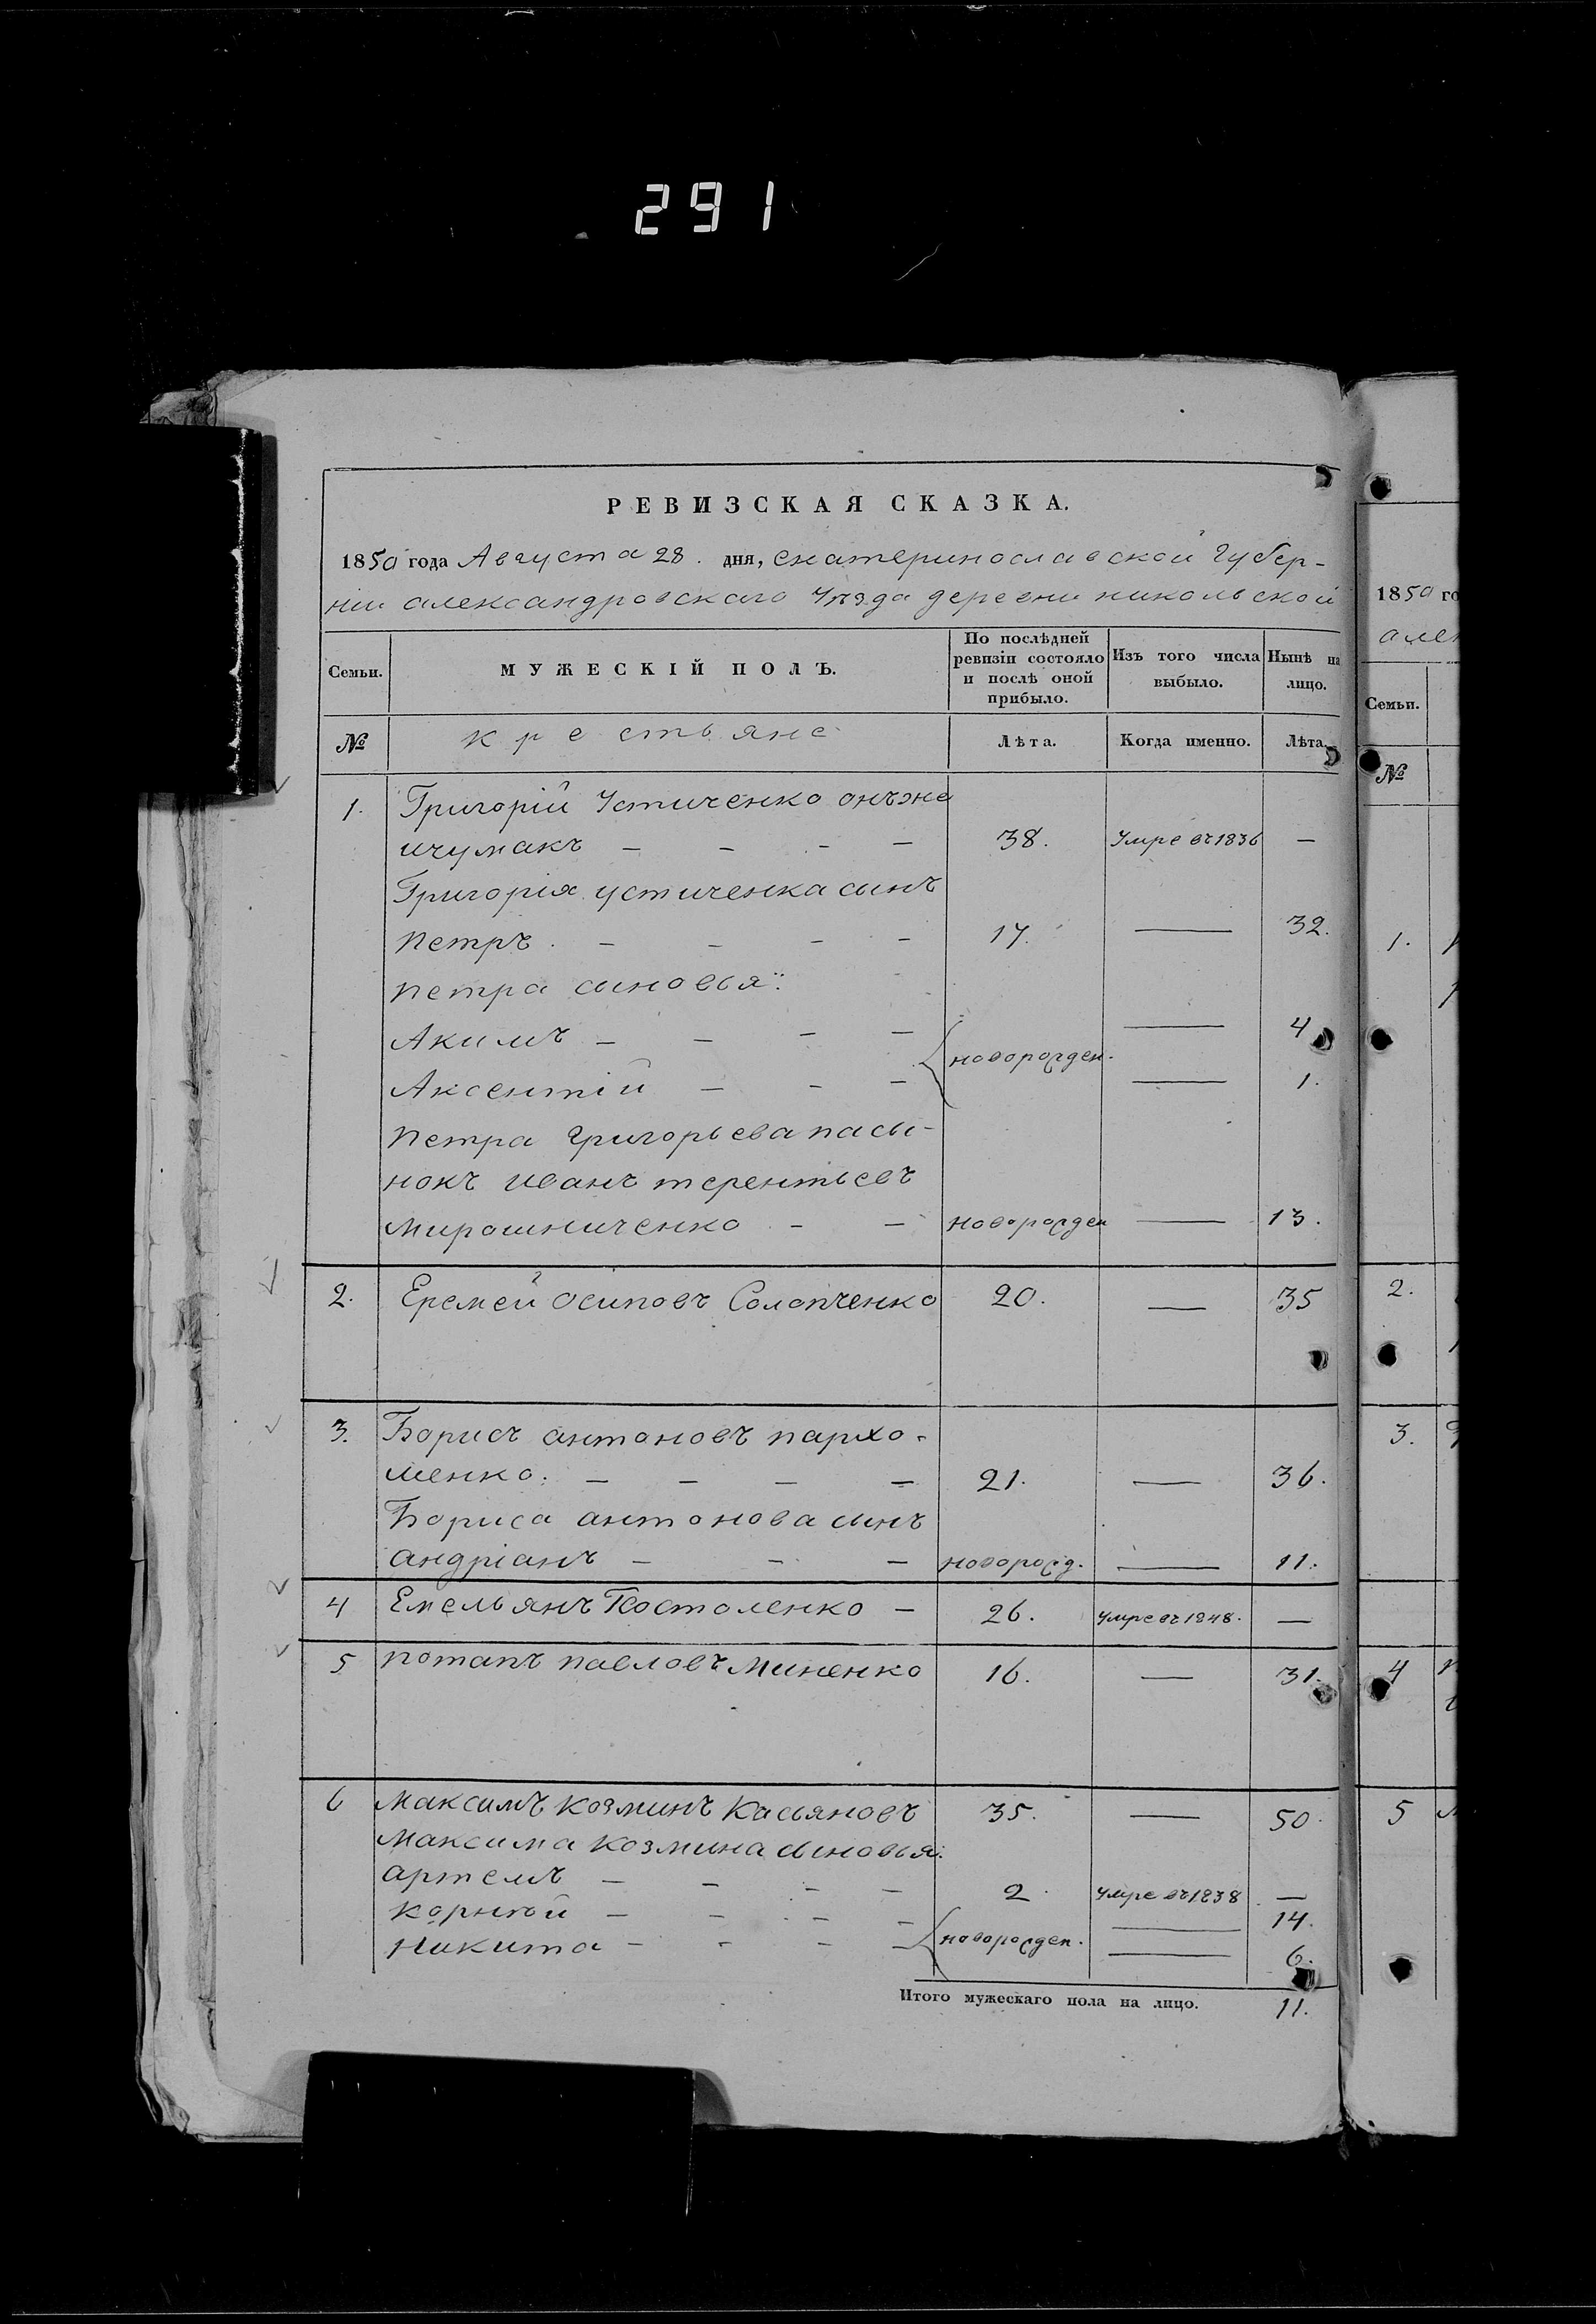 291
РЕВИЗСКАЯ СКАЗКА.
1850 года Августа 28. дня, екатеринославской Губер-
ніи александровскаго Уѣзда деревни никольской
Семьи. МУЖЕСКІЙ ПОЛЪ. По послѣдней ревизіи состояло и послѣ оной прибыло. Изъ того числа выбыло. Нынѣ на лицо.
№ крестьяне Лѣта. Когда именно. Лѣта.
1. Григорій Устиченко онъже
ичумакъ — — — — 38. Умре въ 1836 —
Григорія устиченка сынъ
петръ. — — — — 17. — 32.
петра сыновья:
Акимъ — — — — новорожден. — 4
Аксентій — — — — 1.
петра григорьева пасы-
нокъ иванъ терентьевъ
мирошниченко — — новорожден — 13.
2. Еремей осиповъ Солопченко 20. — 35
3. Борисъ антоновъ пархо-
менко. — — — — 21. — 36.
Бориса антонова сынъ
андріанъ — — — новорожд. — 11.
4 Емельянъ Костоленко — 26. умре въ 1848. —
5 потапъ павловъ Миненко 16. — 31.
6 максимъ козминъ Касьяновъ 35. — 50.
максима козмина сыновья:
артемъ — — — — 2. умре въ 1838 —
корнѣй — — — — новорожден. — 14.
никита — — — — — 6.
Итого мужескаго пола на лицо. 11.
1850 го
ален
Семьи.
№
1.
2.
3.
4
5